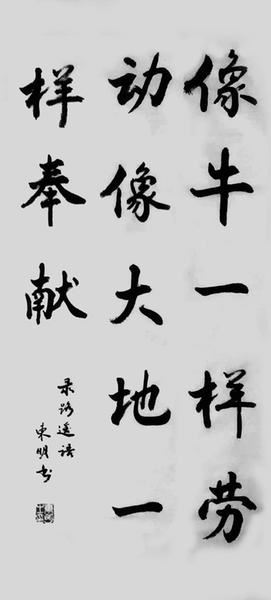 像牛一样劳
动像大地一
样奉献
录路遥语
東明书